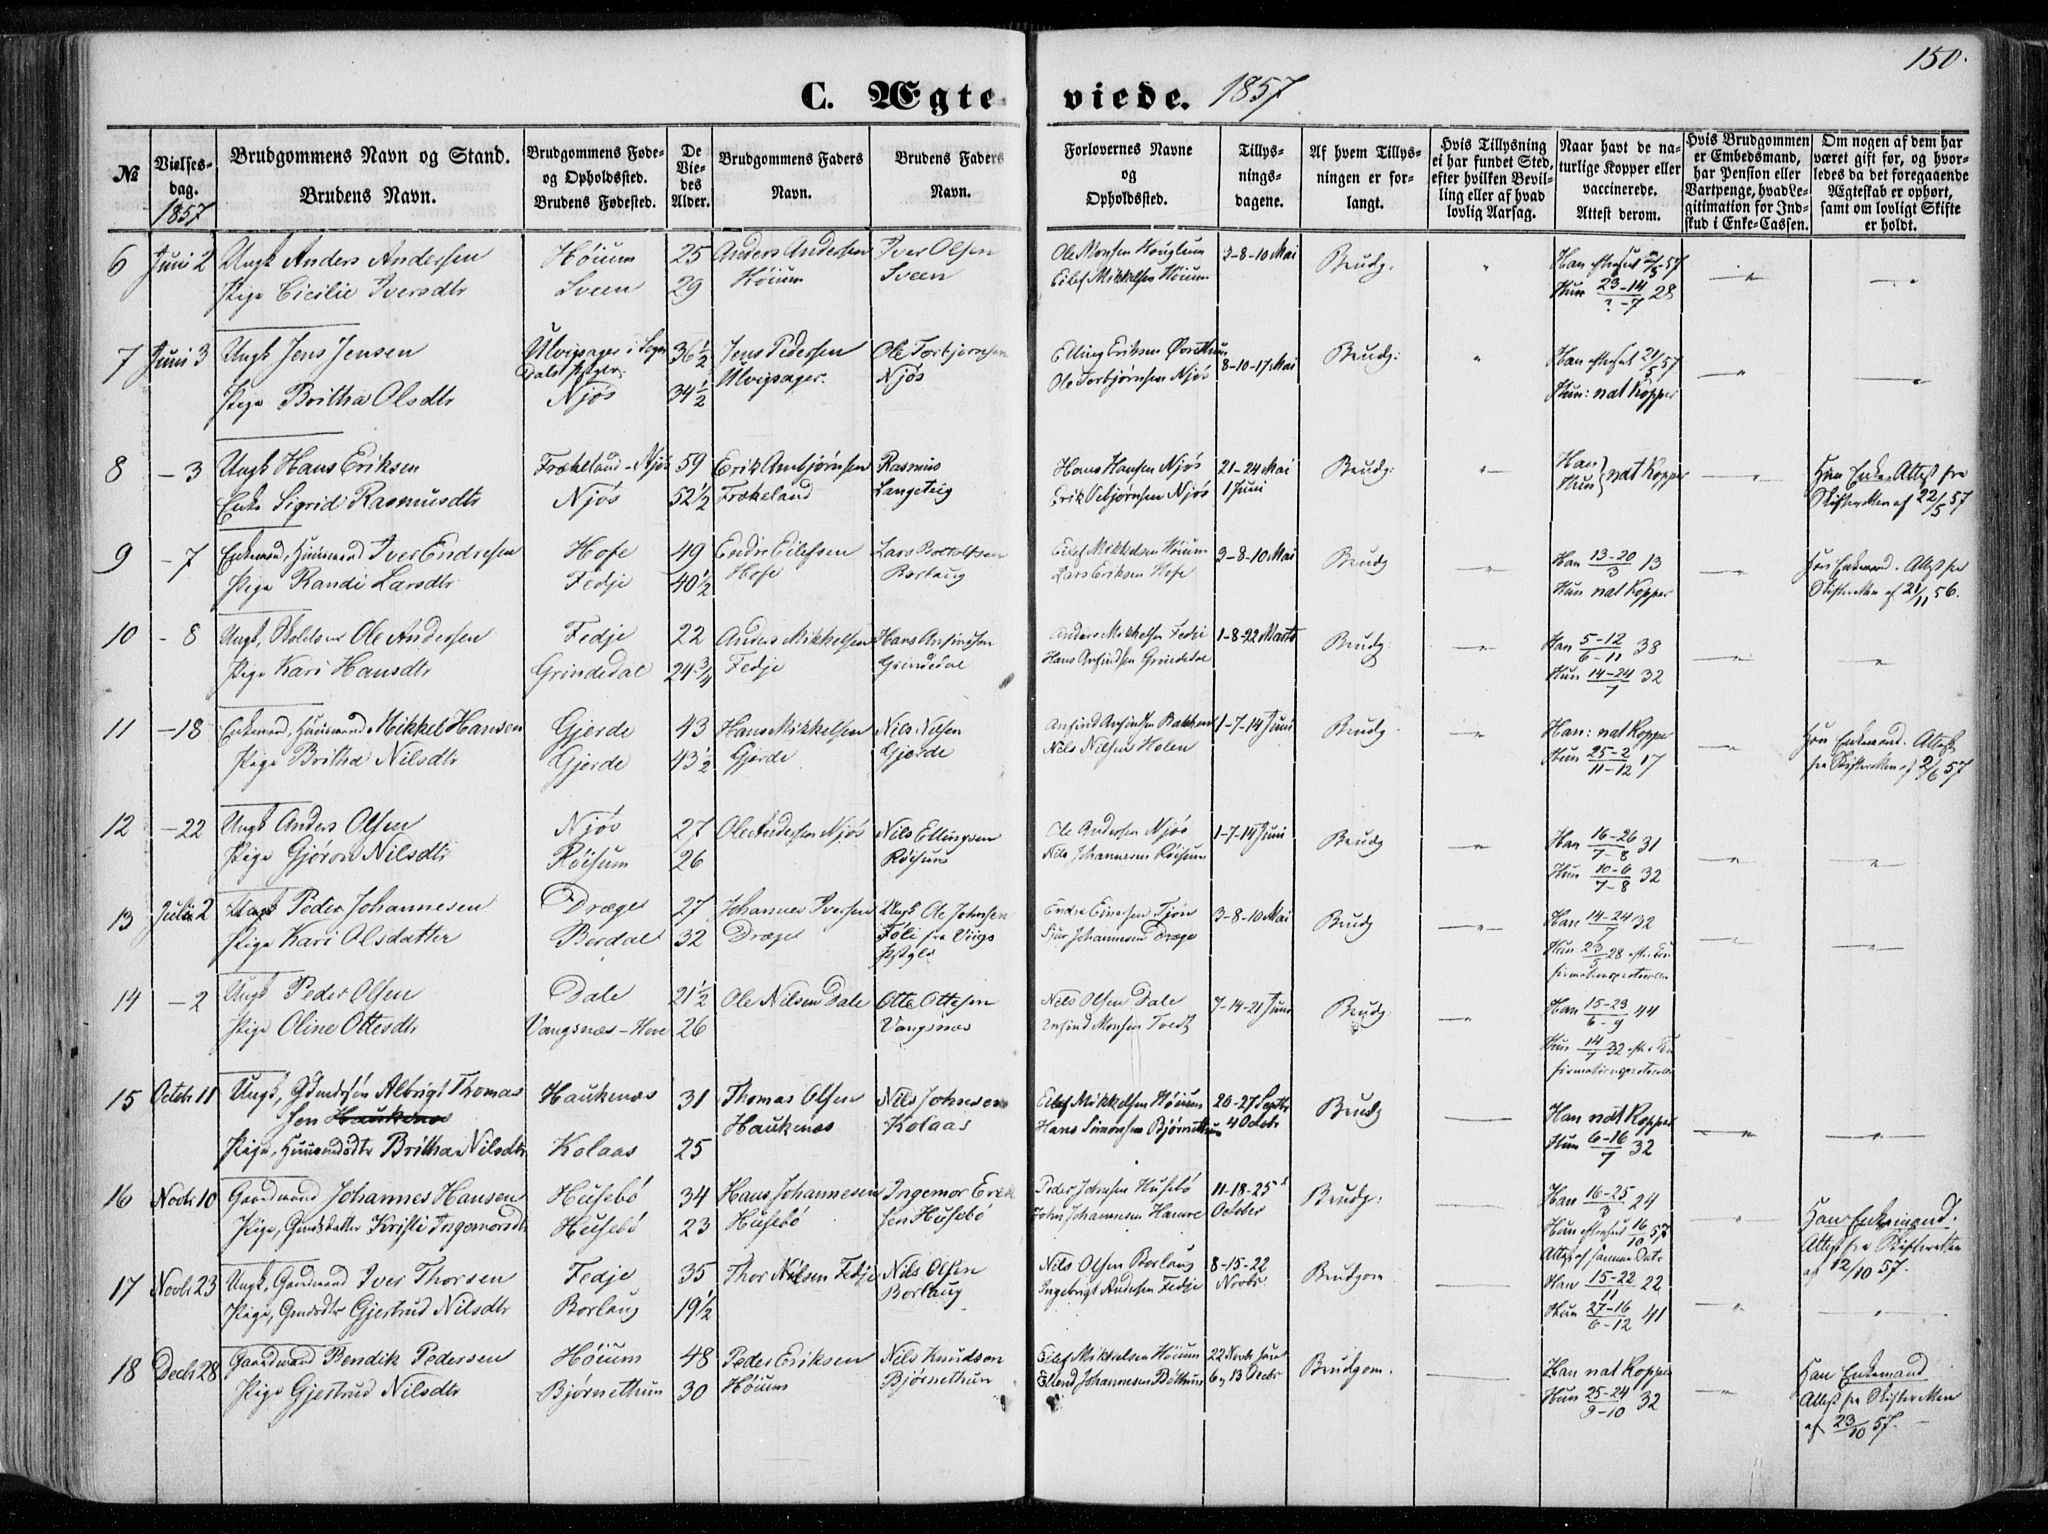 150.
C. Ægteviede. 1857
№
Vielsesdag. 1857
Brudgommens Navn og Stand. Brudens Navn.
Brudgommens Føde- og Opholdssted. Brudens Fødested.
De Viedes Alder.
Brudgommens Faders Navn.
Brudens Faders Navn.
Forlovernes Navne og Opholdssted.
Tillysningsdagene.
Af hvem Tillysningen er forlangt.
Hvis Tillysning ei har fundet Sted, efter hvilken Bevilling eller af hvad lovlig Aarsag.
Naar havt de naturlige Kopper eller vaccinerede. Attest derom.
Hvis Brudgommen er Embedsmand, har Pension eller Vartpenge, hvad Legitimation for Indskud i Enke-Cassen.
Om nogen af dem har været gift før, og hvorledes da det foregaaende Ægteskab er ophørt, samt om lovligt Skifte er holdt.
6 Juni 2 Ungk Anders Andersen Høium 25 Anders Andersen Iver Olsen Ole Monsen 3-8-10 Mai Brudg. " Han 57 " "
Pige Cicilie Iversdtr Sveen 29 Høium Sveen Eilef Mikkelsen Høium Hun 23-14/?-7 28
7 Juni 3 Ungk Jens Jensen Ulvigsager i Sogndals Pstgjr. 36 1/2 Jens Pedersen Ole Torbjørnsen Elling Eriksen 8-10-17 Mai Brudg: " Han 21/5 57 " "
Pige Britha Olsdtr Njøs 34 1/2 Ulvigsager. Njøs Ole Torbjørnsen Njøs Hun: nat Kopper
8 - 3 Ungk Hans Eriksen Frækeland - Njøs 59 Erik Ambjørnsen Rasmus Hans Hansen Njøs 21-24 Mai Brudg: " Han " Hun Enke. Attest fra
Enke Sigrid Rasmusdtr Njøs 52 1/2 Frækeland Langeteig Erik Njøs 1 Juni Hun nat Kopper Skifteretten af 22/5 57
9 - 7 Enkemand, Huusmand Iver Endresen Hofe 49 Endre Eilefsen Lars Eilef Mikkelsen Høium 3-8-10 Mai Brudg " Han 13-20/3 13 " Han Enkemand. Attest fra
Pige Randi Larsdtr Fedje 40 1/2 Hofe Borlaug Lars Eriksen Hofe Hun nat Kopper Skifteretten af 21/11 56.
10 - 8 Ungk, Ole Andersen Fedje 22 Anders Mikkelsen Hans Anfindsen Anders Mikkelsen Fedje 1-8-22 Marts Brudg: " Han 5-12/6-11 38 " "
Pige Kari Hansdtr Grindedal 24 3/4 Fedje Grindedal Hans Anfindsen Grindedal Hun 14-24/7 32
11 -18 Enkemand, Huusmand Mikkel Hansen Gjerde 43 Hans Mikkelsen Nils Nilsen Anfind Anfindsen Bakken 1-7-14 Juni Brudg. " Han: nat Kopper " Han Enkemand. Attest
Pige Britha Nilsdtr Gjerde 43 1/2 Gjerde Gjerde Nils Nilsen Holen Hun 25-2/11-12 17 fra Skifteretten af 2/6 57
12 -22 Ungk Anders Olsen Njøs 27 Ole Andersen Njøs Nils Ellingsen Ole Andersen Njøs 1-7-14 Juni Brudg " Han 16-26/7-8 31 " "
Pige Gjøron Nilsdtr Røisum 26 Røisum Nils Johannesen Røisum Hun 10-6/7-8 32
13 Julii 2 Ungk Peder Johannesen Dræge 27 Johannes Iversen Ungk Ole Johnsen Endre Einersen Tjøn 3-8-10 Mai Brudg " Han 14-24/7 32 " "
Pige Kari Olsdatter Berdal 32 Dræge Føli fra Viigs Pstgld Johannesen Dræge Hun 23/5 28 efter Confirmationsprotocollen
14 - 2 Ungk Peder Olsen Dale 21 1/2 Ole Nilsen Dale Otte Ottesen Nils Olsen Dale 7-14-21 Juni Brudg: " Han 15-23/6-9 44
Pige Oline Ottesdtr Vangsnæs - Hove 26 Vangsnæs Anfind Monsen Tvedt Hun 14/7 32 efter Confirmationsprotocollen
15 Octob 11 Ungk, Gmdssøn Albrigt Thomassen Haukenæs Haukenæs 31 Thomas Olsen Nils Johnsen Eilef Mikkelsen Høium 20-27 Septbr Brudg — Han nat Kopper " "
Pige, Huusmdsdtr Britha Nilsdtr Kolaas 25 Haukenæs Kolaas Hans Simonsen Bjørnethun 4 Octobr Hun 6-16/7 32
16 Novbr 10 Gaardmand Johannes Hansen Husebø 34 Hans Johannesen Ingemor Erik- Peder Johnsen Husebø 11-18-25 Brudg: Han 16-25/3 24 " Han Enkemand.
Pige, Gmdsdatter Kristi Ingemorsdtr Husebø 23 Husebø sen Husebø John Johannesen Hamre October Hun 16/10 57 Attest af samme Dato Attest fra Skifteretten af 12/10 57.
17 Novbr 23 Ungk, Gaardmand Iver Thorsen Fedje 35 Thor Nilsen Fedje Nils Olsen Nils Olsen Borlaug 8-15-22 Brudgom — Han 15-22/11 22 " "
Pige, Gmdsdtr Gjertrud Nilsdtr Borlaug 19 1/2 Borlaug Ingebrigt Andersen Fedje Novbr. Hun 27-16/6-12 41
18 Decbr 28 Gaardmand Bendik Pedersen Høium 48 Peder Eriksen Nils Knudsen Eilef Mikkelsen Høium 22 Novbr samt Brudgom. — Han nat Kopper " Han Enkemand
Pige Gjertrud Nilsdtr Bjørnethun 30 Høium Bjørnethun Ellend Johannesen Bøthun 6 og 13 Decbr Hun 25-24/9-10 32 Attest fra Skifteretten af 23/10 57.